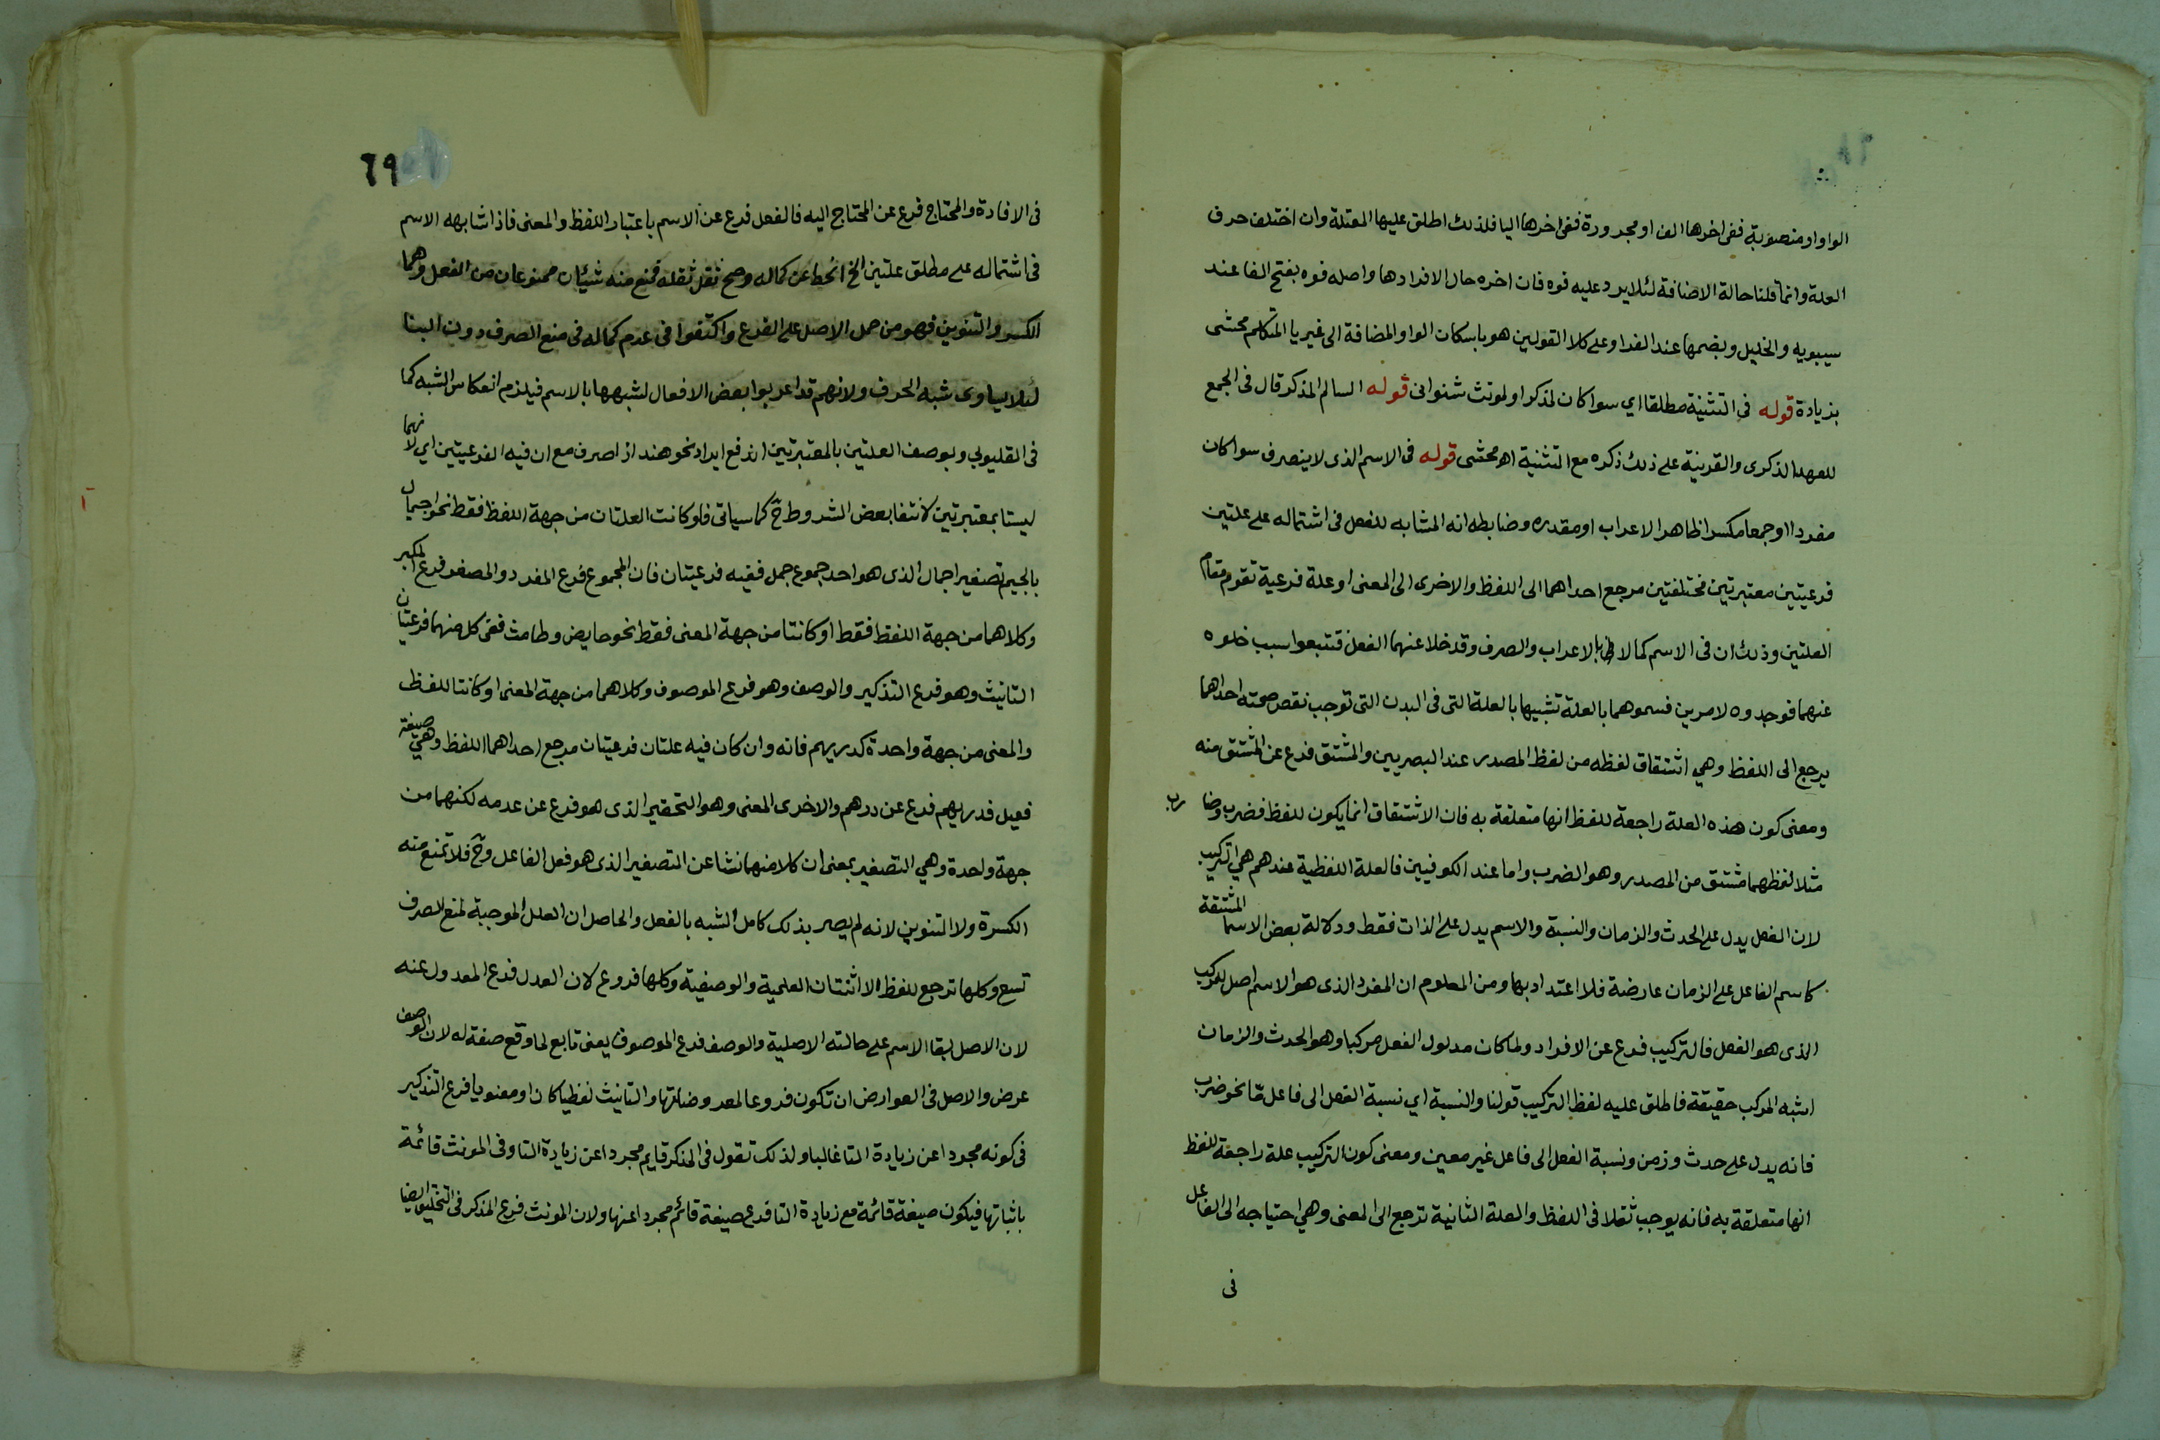 الواو او منصوبة ففى اخرها الف او مجرورة ففى اخرها اليا فلذلك اطلق عليها المعتلة وان اختلف حرف
العلة وانما قلنا حالة الاضافة لئلا يرد عليه فوه فان اخره حال الافراد ها واصله فوه بفتح الفا عند
سيبويه والخليل وبضمها عند الفرا وعلى كلا القولين هو باسكان الواو المضافة الى غير يا المتكلم محشى
بزيادة قوله فى التثنية مطلقا اي سوا كان لمذكر او لمونث شنوانى قوله السالم المذكر قال فى الجمع
للعهد الذكرى والقرينة على ذلك ذكره مع التثنية اه محشى قوله فى الاسم الذى لا ينصرف سوا كان
مفردا او جمعا مكسرا ظاهر الاعراب او مقدره وضابطه انه المشابه للفعل فى اشتماله على علتين
فرعيتين معتبرتين مختلفتين مرجع احداهما الى اللفظ والاخرى الى المعنى او علة فرعية تقوم مقام
العلتين وذلك ان فى الاسم كمالا بالاعراب والصرف وقد خلا عنهما الفعل فتتبعوا سبب خلوه
عنهما فوجدوه لامرين فسموهما بالعلة تشبيها بالعلة التى فى البدن التى توجب نقص صحته احداهما
يرجع الى اللفظ وهي اشتقاق لفظه من لفظ المصدر عند البصريين والمشتق فرع عن المشتق منه
ومعنى كون هذه العلة راجعة للفظ انها متعلقة به فان الاشتقاق انما يكون للفظ فضرب وضارب
مثلا لفظهما مشتق من المصدر وهو الضرب واما عند الكوفيين فالعلة اللفظية عندهم هي التركيب
لان الفعل يدل على الحدث والزمان والنسبة والاسم يدل على الذات فقط ودلالة بعض الاسما المشتقة
كاسم الفاعل على الزمان عارضة فلا اعتداد بها ومن المعلوم ان المفرد الذى هو الاسم اصل للمركب
الذى هو الفعل فالتركيب فرع عن الافراد ولما كان مدلول الفعل مركبا وهو الحدث والزمان
اشبه المركب حقيقة فاطلق عليه لفظ التركيب قولنا والنسبة اي نسبة الفعل الى فاعل مّا نحو ضرب
فانه يدل على حدث وزمن ونسبة الفعل الى فاعل غير معين ومعنى كون التركيب علة راجعة للفظ
انها متعلقة به فانه يوجب ثقلا فى اللفظ والعلة الثانية ترجع الى المعنى وهي احتياجه الى الفاعل
فى
٦٩
فى الافادة والمحتاج فرع عن المحتاج اليه فالفعل فرع عن الاسم باعتبار اللفظ والمعنى فاذا شابهه الاسم
فى اشتماله على مطلق علتين الخ انحط عن كماله وصح ثقله فمنع منه شيئان ممنوعان من الفعل وهما
الكسر والتنوين فهو من حمل الاصل على الفرع واكتفوا فى عدم كماله فى منع الصرف دون البنا
لئلا يساوى شبه الحرف ولانهم قد اعربوا بعض الافعال لشبهها بالاسم فيلزم انعكاس الشبه كما
فى القليوبي وبوصف العلتين بالمعتبرتين اندفع ايراد نحو هند اذا صرف مع ان فيه الفرعيتين اي لانهما
ليستا بمعتبرتين لانتفا بعض الشروط ح كما سياتى فلو كانت العلتان من جهة اللفظ فقط نحو اجيمال
بالجيم تصغير اجمال الذى هو احد جموع جمل ففيه فرعيتان فان المجموع فرع المفرد والمصغر فرع المكبر
وكلاهما من جهة اللفظ فقط او كانتا من جهة المعنى فقط نحو حايض وطامث ففى كل منهما فرعيتان
التانيث وهو فرع التذكير والوصف وهو فرع الموصوف وكلاهما من جهة المعنى او كانتا للفظ
والمعنى من جهة واحدة كدريهم فانه وان كان فيه علتان فرعيتان مرجع احداهما اللفظ وهي صيغة
فعيل فدريهم فرع عن درهم والاخرى المعنى وهو التحقير الذى هو فرع عن عدمه لكنهما من
جهة واحدة وهي التصغير بمعنى ان كلا منهما نشا عن التصغير الذى هو فعل الفاعل وح فلا تمنع منه
الكسرة ولا التنوين لانه لم يصر بذلك كامل الشبه بالفعل والحاصل ان العلل الموجبة لمنع الصرف
تسع وكلها ترجع للفظ الا اثنتان العلمية والوصفية وكلها فروع لان العدل فرع المعدول عنه
لان الاصل بقا الاسم على حالته الاصلية والوصف فرع الموصوف يعنى تابع لما وقع صفة له لان الوصف
عرض والاصل فى العوارض ان تكون فروعا لمعروضاتها والتانيث لفظيا كان او معنويا فرع التذكير
فى كونه مجردا عن زيادة التا غالبا ولذلك تقول فى المذكر قايم مجردا عن زيادة التا وفى المونث قائمة
باثباتها فيكون صيغة قائمة مع زيادة التا فرع صيغة قائم مجردا عنها ولان المونث فرع المذكر فى التخليق ايضا